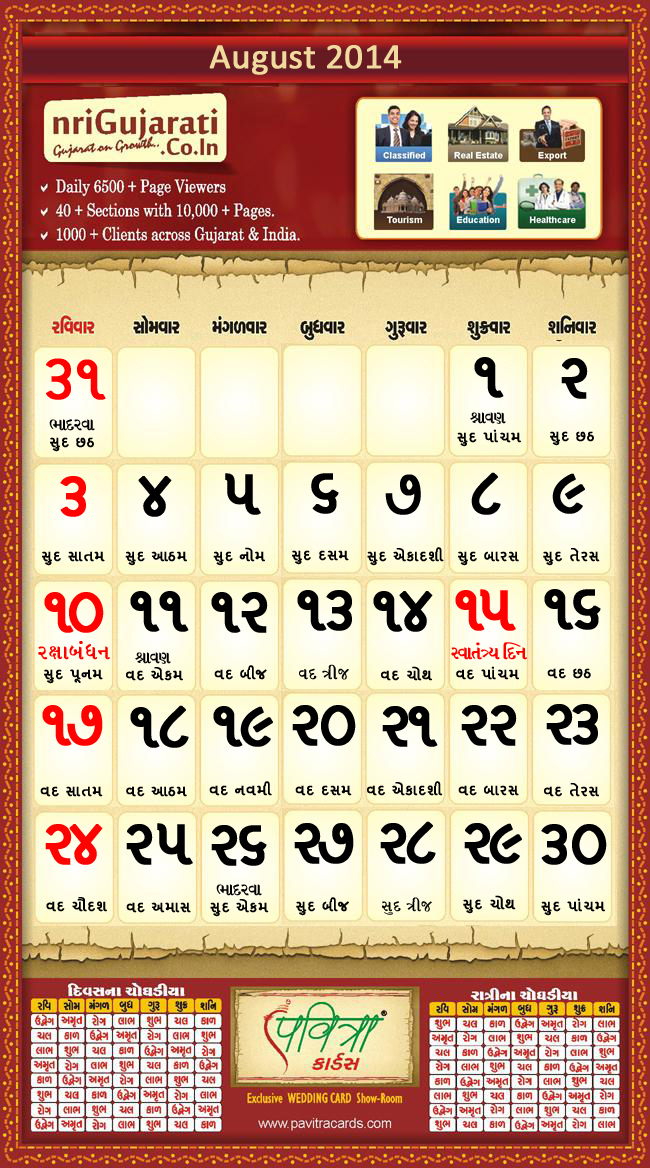 August 2014
nriGujarati
Gujarat on Growth..
.Co.In
Daily 6500 + Page Viewers
40 + Sections with 10,000 + Pages.
1000 + Clients across Gujarat & India.
Classified Real Estate Export
Tourism Education Healthcare
રવિવાર સોમવાર મંગળવાર બુધવાર ગુરૂવાર શુક્રવાર શનિવાર
૩૧ ૧ ૨
ભાદરવા શ્રાવણ
સુદ છઠ સુદ પાંચમ સુદ છઠ
૩ ૪ ૫ ૬ ૭ ૮ ૯
સુદ સાતમ સુદ આઠમ સુદ નોમ સુદ દસમ સુદ એકાદશી સુદ બારસ સુદ તેરસ
૧૦ ૧૧ ૧૨ ૧૩ ૧૪ ૧૫ ૧૬
રક્ષાબંધન શ્રાવણ સ્વાતંત્ર્ય દિન
સુદ પૂનમ વદ એકમ વદ બીજ વદ ત્રીજ વદ ચોથ વદ પાંચમ વદ છઠ
૧૭ ૧૮ ૧૯ ૨૦ ૨૧ ૨૨ ૨૩
વદ સાતમ વદ આઠમ વદ નવમી વદ દસમ વદ એકાદશી વદ બારસ વદ તેરસ
૨૪ ૨૫ ૨૬ ૨૭ ૨૮ ૨૯ ૩૦
ભાદરવા
વદ ચૌદશ વદ અમાસ સુદ એકમ સુદ બીજ સુદ ત્રીજ સુદ ચોથ સુદ પાંચમ
દિવસના ચોઘડીયા
રવિ સોમ મંગળ બુધ ગુરૂ શુક્ર શનિ
ઉદ્વેગ અમૃત રોગ લાભ શુભ ચલ કાળ
ચલ કાળ ઉદ્વેગ અમૃત રોગ લાભ શુભ
લાભ શુભ ચલ કાળ ઉદ્વેગ અમૃત રોગ
અમૃત રોગ લાભ શુભ ચલ કાળ ઉદ્વેગ
કાળ ઉદ્વેગ અમૃત રોગ લાભ શુભ ચલ
શુભ ચલ કાળ ઉદ્વેગ અમૃત રોગ લાભ
રોગ લાભ શુભ ચલ કાળ ઉદ્વેગ અમૃત
ઉદ્વેગ અમૃત રોગ લાભ શુભ ચલ કાળ
પવિત્રા®
કાર્ડસ
Exclusive WEDDING CARD Show-Room
www.pavitracards.com
રાત્રીના ચોઘડીયા
રવિ સોમ મંગળ બુધ ગુરૂ શુક્ર શનિ
શુભ ચલ કાળ ઉદ્વેગ અમૃત રોગ લાભ
અમૃત રોગ લાભ શુભ ચલ કાળ ઉદ્વેગ
ચલ કાળ ઉદ્વેગ અમૃત રોગ લાભ શુભ
રોગ લાભ શુભ ચલ કાળ ઉદ્વેગ અમૃત
કાળ ઉદ્વેગ અમૃત રોગ લાભ શુભ ચલ
લાભ શુભ ચલ કાળ ઉદ્વેગ અમૃત રોગ
ઉદ્વેગ અમૃત રોગ લાભ શુભ ચલ કાળ
શુભ ચલ કાળ ઉદ્વેગ અમૃત રોગ લાભ